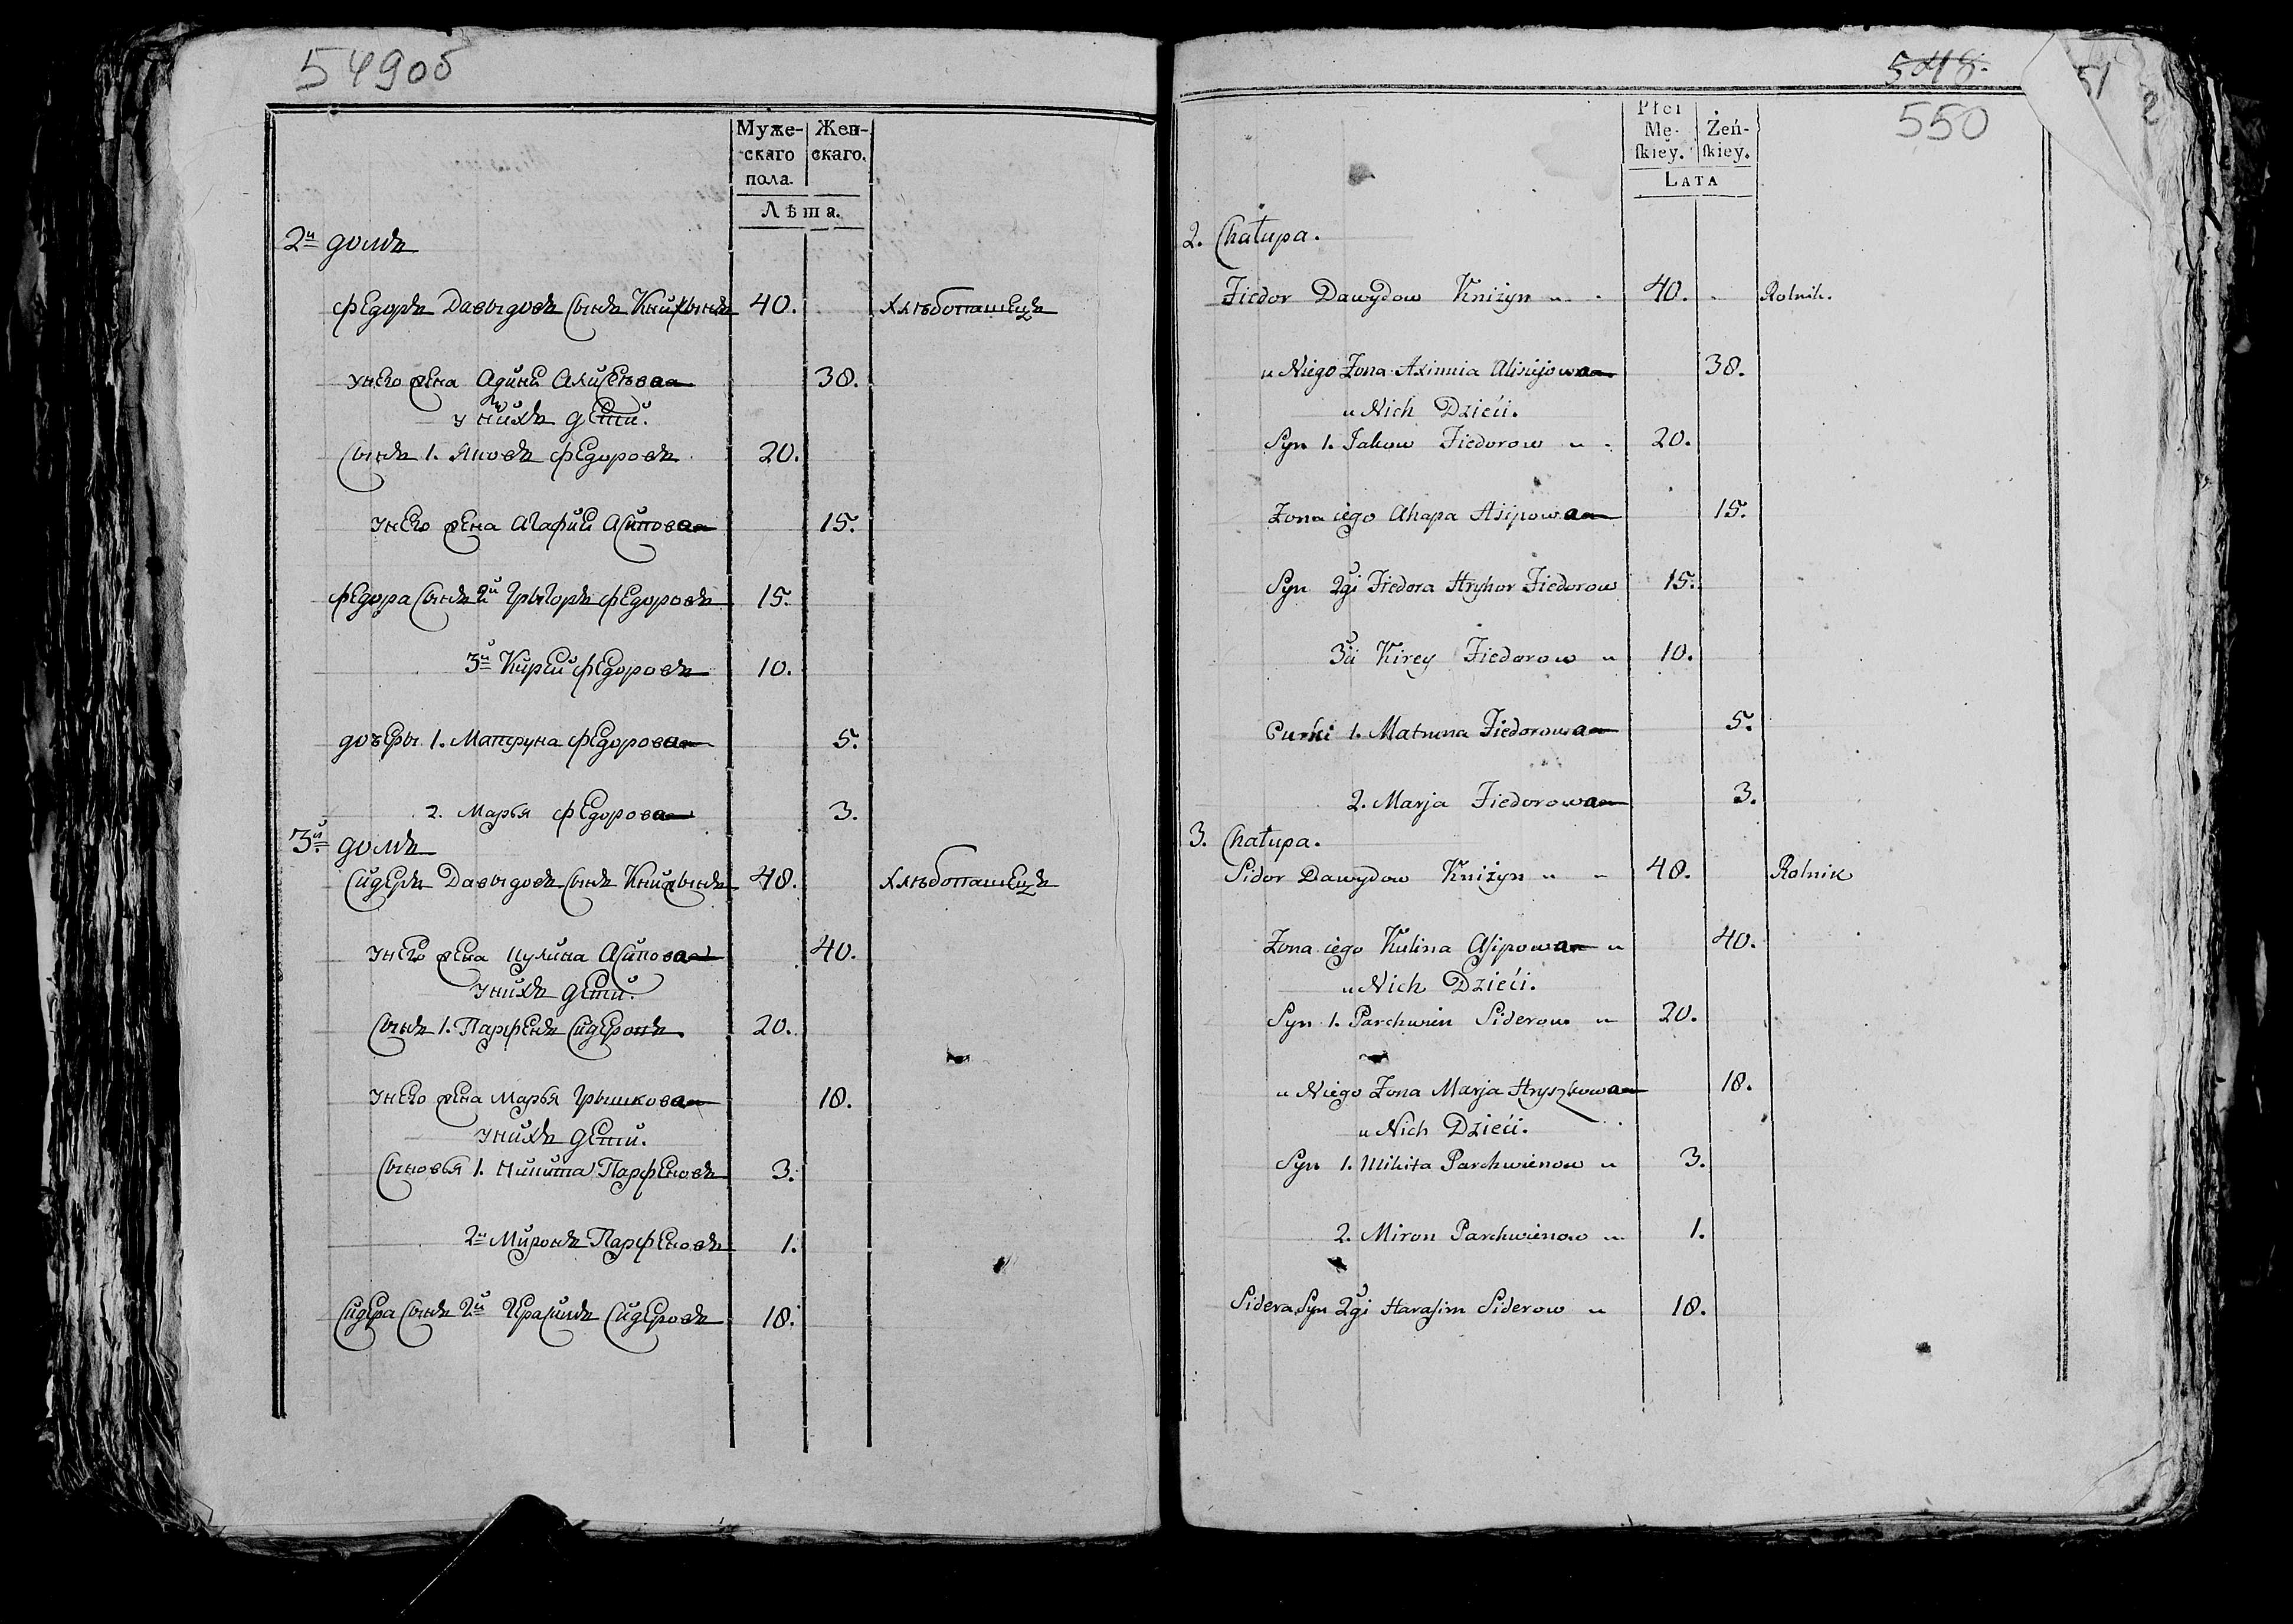 549об
Муже-
скаго
пола.
Жен-
скаго.
Лѣта.
2й домъ
Федоръ Давыдовъ сынъ Книжынъ 40. хлѣбопашецъ
у него жена 38.
у нихъ дети.
сынъ 1. Яковъ Федоровъ 20.
у него жена Агафия Асиповаа 15.
Федора сынъ 2й Грыгоръ Федоровъ 15.
3й Кирей Федоровъ 10.
дочеры 1. Матруна Федороваа 5.
2. Марья Федороваа 3.
3й домъ
Сидеръ Давыдовъ сынъ Книжынъ 48. хлѣбопашецъ
у него жена кулина Асиповаа 40.
у нихъ дети.
сынъ 1. Парфенъ Сидеровъ 20.
у него жена Марья Грышковаа 18.
у нихъ дети.
сыновья 1. Никита Парфеновъ 3.
2й Миронъ Парфеновъ 1.
Сидера сынъ 2й Герасимъ Сидеровъ 18.
548.
550
51
2
Płci
Mę-
skiey.
Żeń-
skiey.
LATA
2. Chałupa.
Fiedor Dawydow Kniżyn 40. Rolnik.
u Niego Żona Axinnia Alisiejowaa 38.
u Nich Dzieći.
Syn 1. Jakow Fiedorow 20.
Żona iego Ahapa Asipowaa 15.
Syn 2gi Fiedora Hryhor Fiedorow 15.
3ci Kirey Fiedorow 10.
Curki 1. Matruna Fiedorowaa 5.
2. Marja Fiedorowaa 3.
3. Chałupa.
Sidor Dawydow Kniżyn 48. Rolnik
Żona iego Kulina Asipowaa 40.
u Nich Dzieći.
Syn 1. Parchwien Siderow 20.
u Niego Żona Marja Hryszkowaa 18.
u Nich Dzieći.
Syn 1. Mikita Parchwienow 3.
2. Miron Parchwienow 1.
Sidera Syn 2gi Harasim Siderow 18.